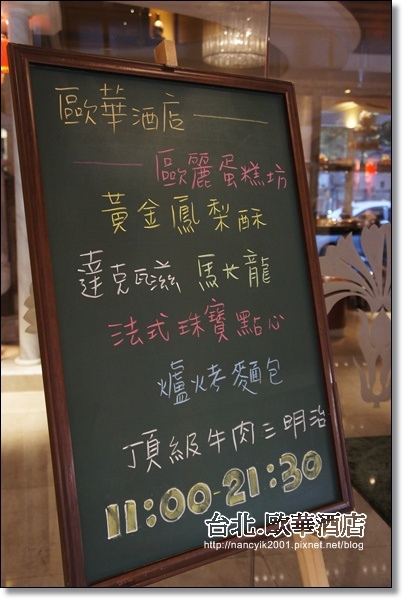 歐華酒店
歐麗蛋糕坊
黃金鳳梨酥
達克瓦滋 馬卡龍
法式珠寶點心
爐烤麵包
頂級牛肉三明治
11:00-21:30
台北.歐華酒店
http://nancyik2001.pixnet.net/blog